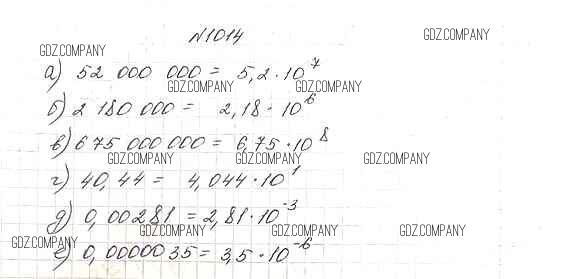 №1014
GDZ.COMPANY GDZ.COMPANY
а) 52 000 000 = 5,2 · 10⁷
GDZ.COMPANY GDZ.COMPANY
б) 2 180 000 = 2,18 · 10⁶
в) 675 000 000 = 6,75 · 10⁸
GDZ.COMPANY GDZ.COMPANY GDZ.COMPANY
г) 40,44 = 4,044 · 10¹
д) 0,00281 = 2,81 · 10⁻³
GDZ.COMPANY GDZ.COMPANY GDZ.COMPANY
GDZ.COMPANY
е) 0,0000035 = 3,5 · 10⁻⁶